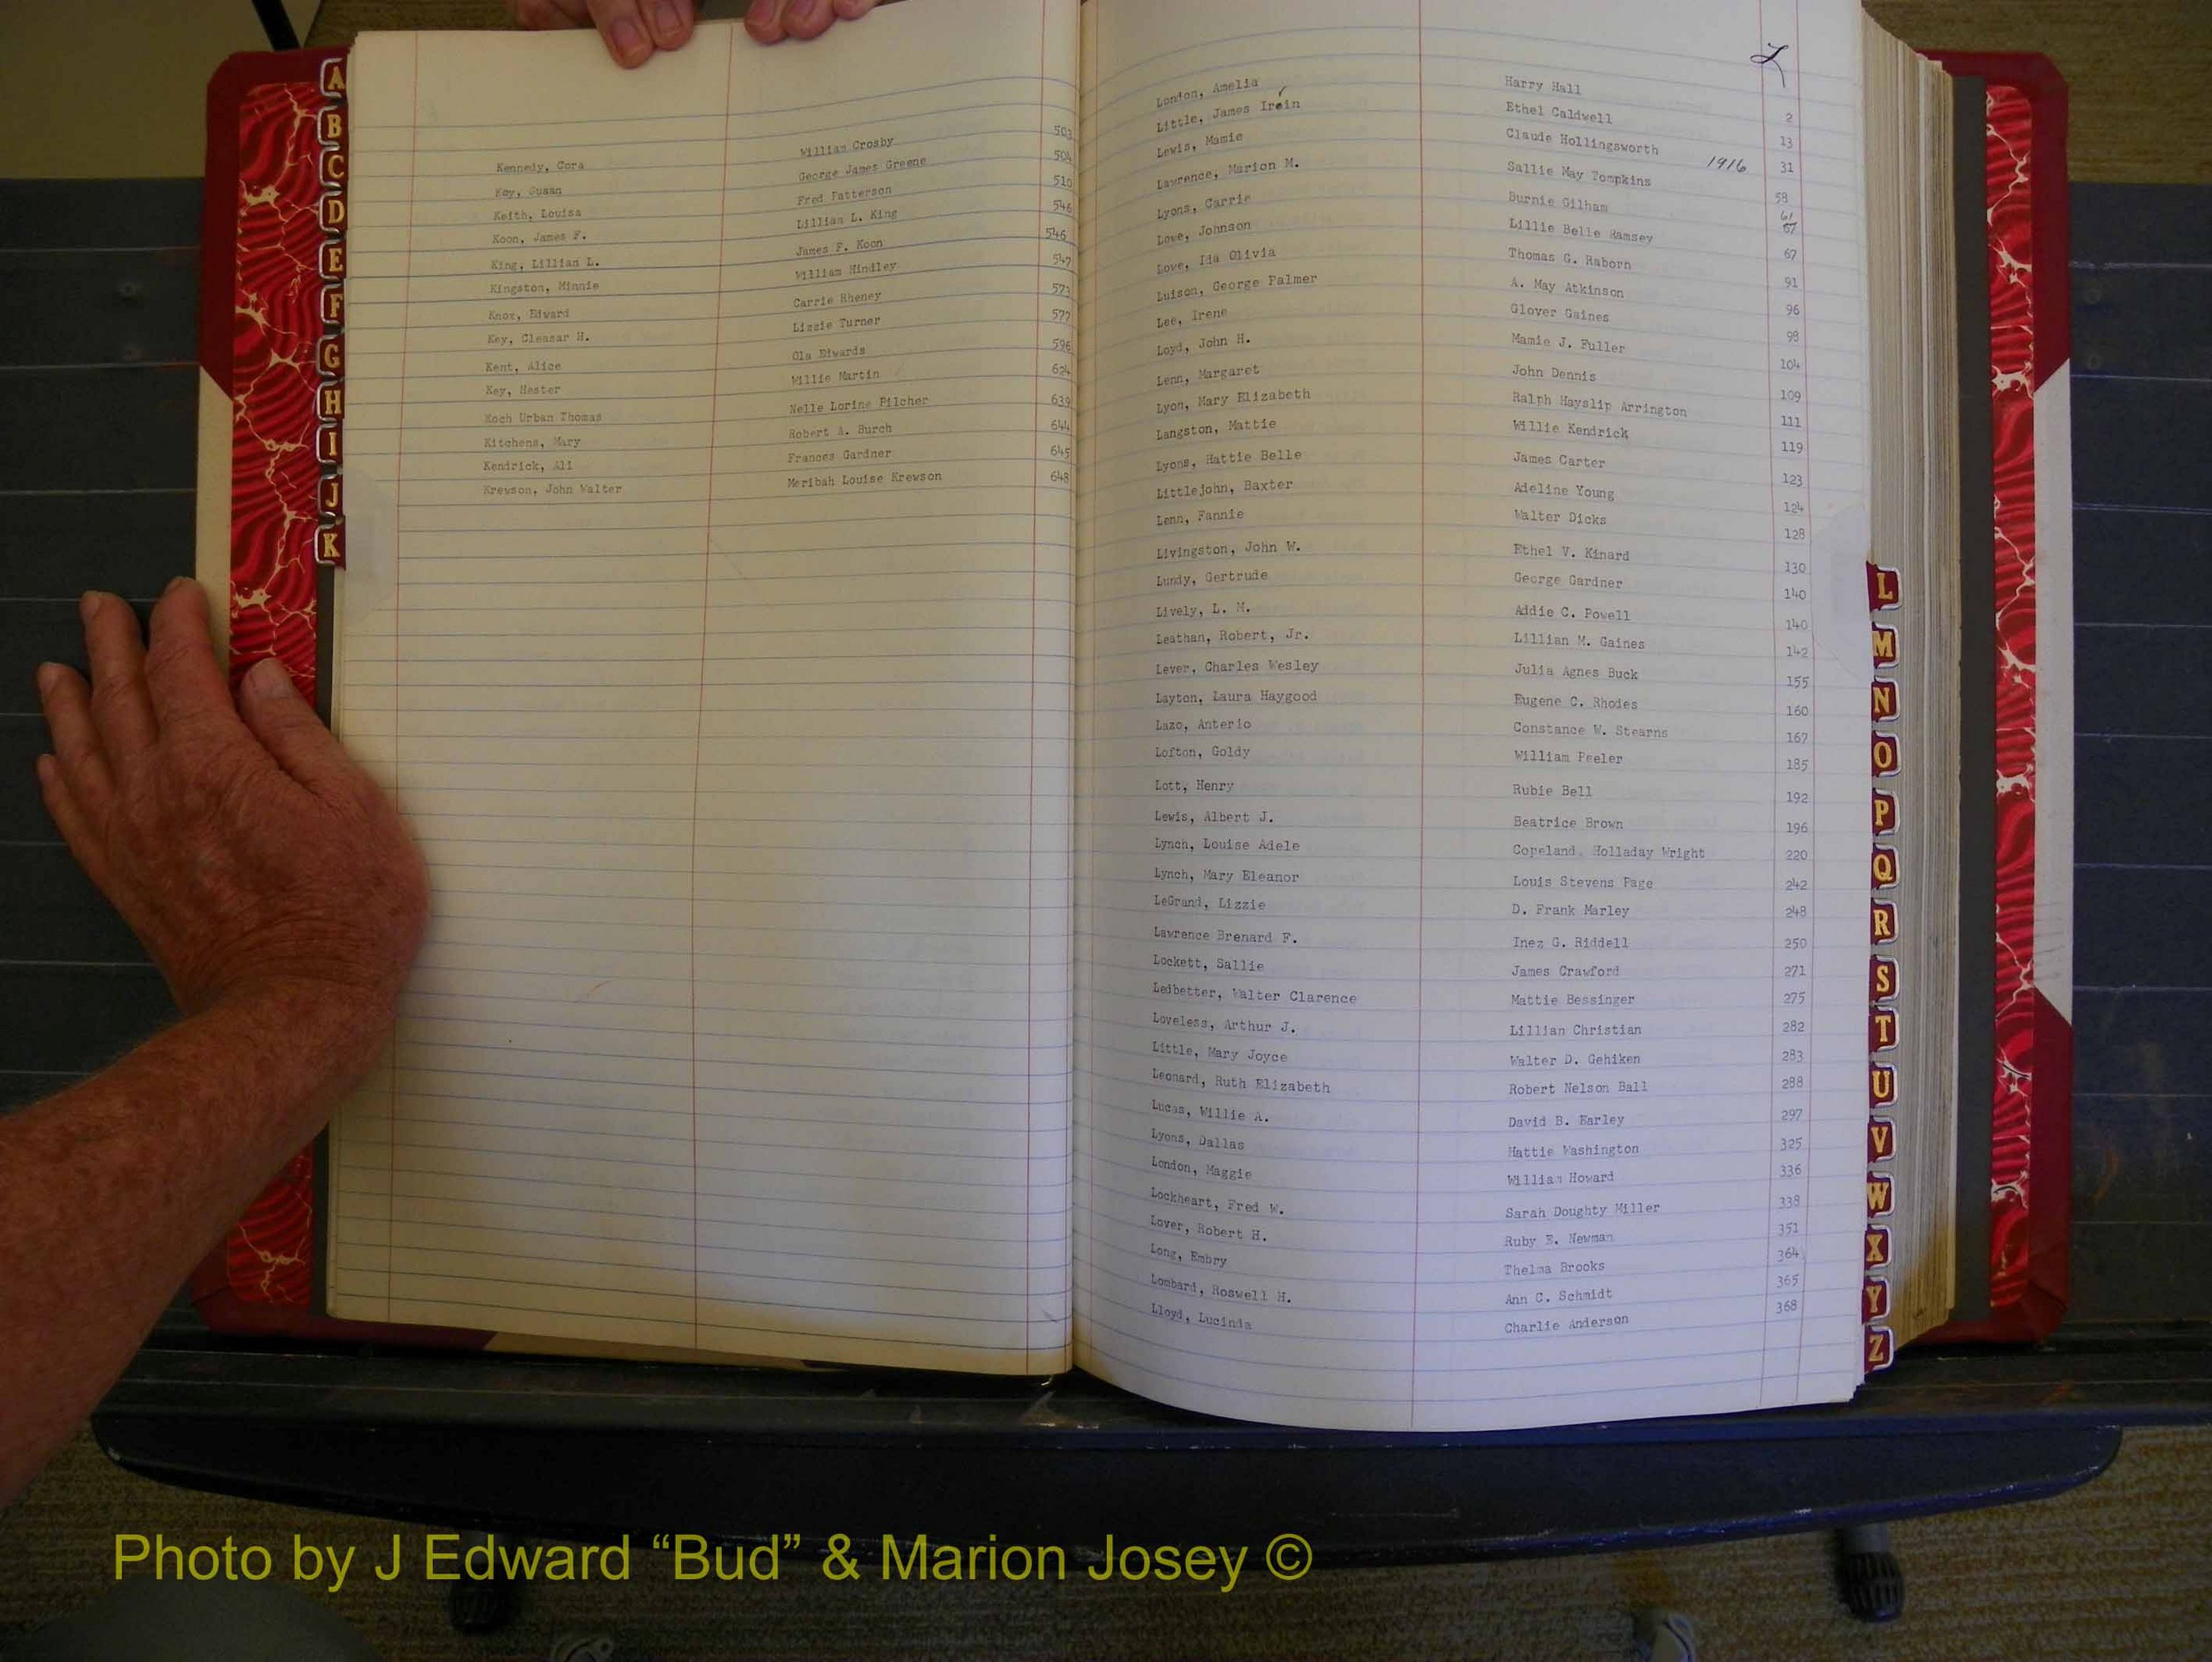 A
B
C
D
E
F
G
H
I
J
K
Kennedy, Cora William Crosby 503
Key, Susan George James Greene 504
Keith, Louisa Fred Patterson 510
Koon, James F. Lillian L. King 546
King, Lillian L. James F. Koon 546
Kingston, Minnie William Hindley 547
Knox, Edward Carrie Rheney 573
Key, Cleasar H. Lizzie Turner 577
Kent, Alice Ola Edwards 596
Key, Hester Willie Martin 624
Koch Urban Thomas Nelle Lorine Pilcher 639
Kitchens, Mary Robert A. Burch 644
Kendrick, Ali Frances Gardner 645
Krewson, John Walter Meribah Louise Krewson 648
L
London, Amelia Harry Hall 2
Little, James Irvin Ethel Caldwell 13
Lewis, Mamie Claude Hollingsworth 31
Lawrence, Marion M. Sallie May Tompkins 1916 58
Lyons, Carrie Burnie Gilham 61
Love, Johnson Lillie Belle Ramsey 67
Love, Ida Olivia Thomas G. Raborn 91
Luison, George Palmer A. May Atkinson 96
Lee, Irene Glover Gaines 98
Loyd, John H. Mamie J. Fuller 104
Lenn, Margaret John Dennis 109
Lyon, Mary Elizabeth Ralph Hayslip Arrington 111
Langston, Mattie Willie Kendrick 119
Lyons, Hattie Belle James Carter 123
Littlejohn, Baxter Adeline Young 124
Lenn, Fannie Walter Dicks 128
Livingston, John W. Ethel V. Kinard 130
Lundy, Gertrude George Gardner 140
Lively, L. M. Addie C. Powell 140
Leathan, Robert, Jr. Lillian M. Gaines 142
Lever, Charles Wesley Julia Agnes Buck 155
Layton, Laura Haygood Eugene C. Rhodes 160
Lazo, Anterio Constance W. Stearns 167
Lofton, Goldy William Peeler 185
Lott, Henry Rubie Bell 192
Lewis, Albert J. Beatrice Brown 196
Lynch, Louise Adele Copeland Holladay Wright 220
Lynch, Mary Eleanor Louis Stevens Page 242
LeGrand, Lizzie D. Frank Marley 248
Lawrence Brenard F. Inez G. Riddell 250
Lockett, Sallie James Crawford 271
Ledbetter, Walter Clarence Mattie Bessinger 275
Loveless, Arthur J. Lillian Christian 282
Little, Mary Joyce Walter D. Gehiken 283
Leonard, Ruth Elizabeth Robert Nelson Ball 288
Lucas, Willie A. David B. Earley 297
Lyons, Dallas Hattie Washington 325
London, Maggie William Howard 336
Lockheart, Fred W. Sarah Doughty Miller 338
Lover, Robert H. Ruby E. Newman 351
Long, Embry Thelma Brooks 364
Lombard, Roswell H. Ann C. Schmidt 365
Lloyd, Lucinda Charlie Anderson 368
L
M
N
O
P
Q
R
S
T
U
V
W
X
Y
Z
Photo by J Edward “Bud” & Marion Josey ©